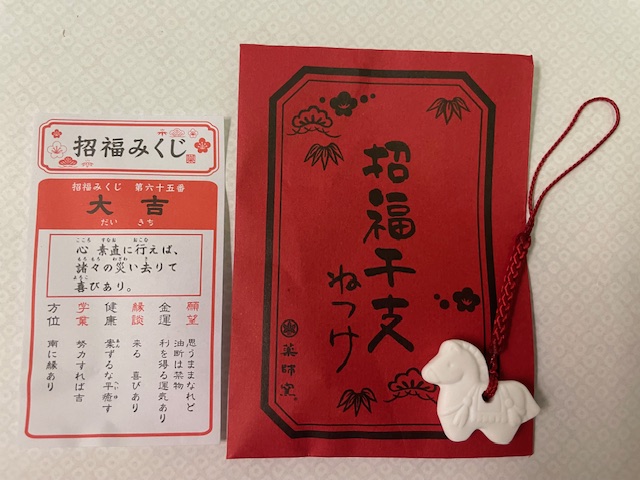 招福みくじ
招福みくじ 第六十五番
大吉
だい きち
心 素直に行えば、
こころ すなお おこな
諸々の災い去りて
もろもろ わざわ さ
喜びあり。
よろこ
願望 思うままなれど油断は禁物
金運 利を得る運気あり
縁談 来る 喜びあり
健康 案ずるな平癒す
あん へいゆ
学業 努力すれば吉
方位 南に縁あり
招福干支
ねつけ
薬師窯